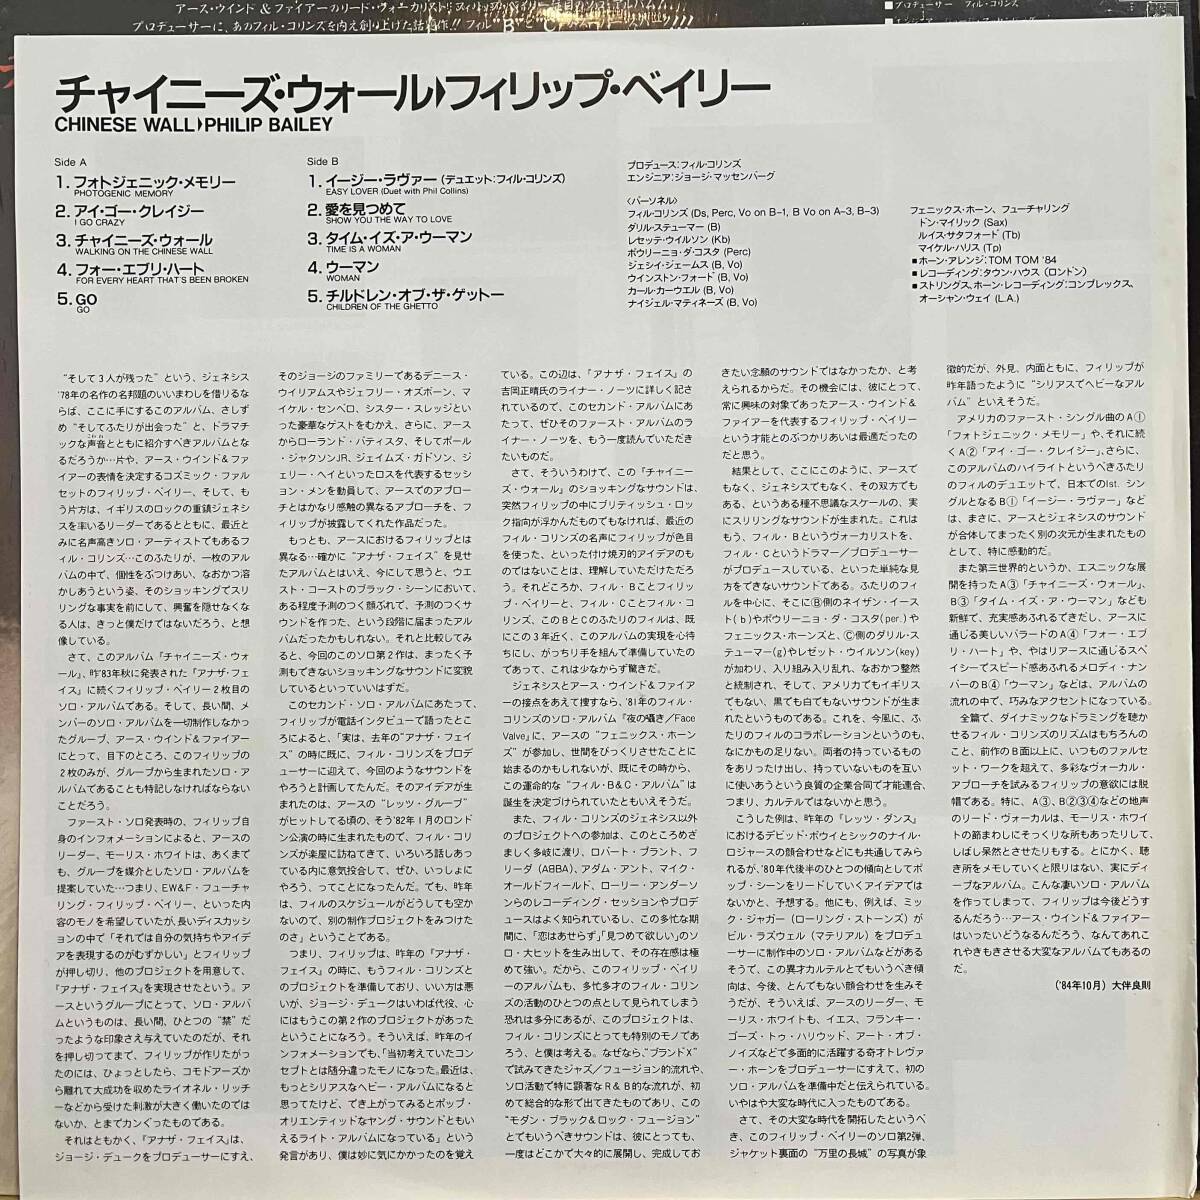 アース・ウインド&ファイアーのリード・ヴォーカリスト
プロデューサーに、あのフィル・コリンズを向え創り上げた話題作!!
プロデューサー フィル・コリンズ
チャイニーズ・ウォール▶フィリップ・ベイリー
CHINESE WALL▶PHILIP BAILEY
Side A
1. フォトジェニック・メモリー
PHOTOGENIC MEMORY
2. アイ・ゴー・クレイジー
I GO CRAZY
3. チャイニーズ・ウォール
WALKING ON THE CHINESE WALL
4. フォー・エブリ・ハート
FOR EVERY HEART THAT'S BEEN BROKEN
5. GO
GO
Side B
1. イージー・ラヴァー (デュエット:フィル・コリンズ)
EASY LOVER (Duet with Phil Collins)
2. 愛を見つめて
SHOW YOU THE WAY TO LOVE
3. タイム・イズ・ア・ウーマン
TIME IS A WOMAN
4. ウーマン
WOMAN
5. チルドレン・オブ・ザ・ゲットー
CHILDREN OF THE GHETTO
プロデュース:フィル・コリンズ
エンジニア:ジョージ・マッセンバーグ
〈パーソネル〉
フィル・コリンズ (Ds, Perc, Vo on B-1, B Vo on A-3, B-3)
ダリル・ステューマー (B)
レセッテ・ウイルソン (Kb)
ポウリーニョ・ダ・コスタ (Perc)
ジェシイ・ジェームス (B, Vo)
ウインストン・フォード (B, Vo)
カール・カーウエル (B, Vo)
ナイジェル・マティネーズ (B, Vo)
フェニックス・ホーン、フューチャリング
ドン・マイリック (Sax)
ルイス・サタフォード (Tb)
マイケル・ハリス (Tp)
■ホーン・アレンジ:TOM TOM '84
■レコーディング:タウン・ハウス (ロンドン)
■ストリングス、ホーン・レコーディング:コンプレックス、
オーシャン・ウェイ (L.A.)
“そして3人が残った”という、ジェネシス
'78年の名作の名邦題のいいまわしを借りるな
らば、ここに手にするこのアルバム、さしず
め“そしてふたりが出会った”と、ドラマチ
ックな声音とともに紹介すべきアルバムとな
るだろうか…片や、アース・ウインド&ファ
イアーの表情を決定するコズミック・ファル
セットのフィリップ・ベイリー、そして、も
う片方は、イギリスのロックの重鎮ジェネシ
スを率いるリーダーであるとともに、最近と
みに名声高きソロ・アーティストでもあるフ
ィル・コリンズ…このふたりが、一枚のアル
バムの中で、個性をぶつけあい、なおかつ溶
かしあうという姿、そのショッキングでスリ
リングな事実を前にして、興奮を隠せなくな
る人は、きっと僕だけではないだろう、と想
像している。
さて、このアルバム『チャイニーズ・ウォ
ール』、昨'83年秋に発表された『アナザ・フェ
イス』に続くフィリップ・ベイリー2枚目の
ソロ・アルバムである。そして、長い間、メ
ンバーのソロ・アルバムを一切制作しなかっ
たグループ、アース・ウインド&ファイアー
にとって、目下のところ、このフィリップの
2枚のみが、グループから生まれたソロ・ア
ルバムであることも特記しなければならない
ことだろう。
ファースト・ソロ発表時の、フィリップ自
身のインフォメーションによると、アースの
リーダー、モーリス・ホワイトは、あくまで
も、グループを媒介としたソロ・アルバムを
提案していた…つまり、EW&F・フューチャ
リング・フィリップ・ベイリー、といった内
容のモノを希望していたが、長いディスカッシ
ョンの中で「それでは自分の気持ちやアイデ
アを表現するのがむずかしい」とフィリップ
が押し切り、他のプロジェクトを用意して、
『アナザ・フェイス』を実現させたという。ア
ースというグループにとって、ソロ・アルバ
ムというものは、長い間、ひとつの“禁”だ
ったような印象さえ与えていたのだが、それ
を押し切ってまで、フィリップが作りたがっ
たのには、ひょっとしたら、コモドアーズか
ら離れて大成功を収めたライオネル・リッチ
ーなどから受けた刺激が大きく働いたのでは
ないか、とまでカンぐったものである。
それはともかく、『アナザ・フェイス』は、
ジョージ・デュークをプロデューサーにすえ、
そのジョージのファミリーであるデニース・
ウイリアムスやジェフリー・オズボーン、マ
イケル・センベロ、シスター・スレッジとい
った豪華なゲストをむかえ、さらに、アース
からローランド・バティスタ、そしてポール
・ジャクソンJR、ジェイムズ・ガドソン、ジ
ェリー・ヘイといったロスを代表するセッシ
ョン・メンを動員して、アースでのアプロー
チとはかなり感触の異なるアプローチを、フ
ィリップが披露してくれた作品だった。
もっとも、アースにおけるフィリップとは
異なる…確かに“アナザ・フェイス”を見せ
たアルバムとはいえ、今にして思うと、ウエ
スト・コーストのブラック・シーンにおいて、
ある程度予測のつく顔ぶれで、予測のつくサ
ウンドを作った、という段階に届まったアル
バムだったかもしれない。それと比較してみ
ると、今回のこのソロ第2作は、まったく予
測もできないショッキングなサウンドに変貌
しているといっていいはずだ。
このセカンド・ソロ・アルバムにあたって、
フィリップが電話インタビューで語ったとこ
ろによると、「実は、去年の“アナザ・フェイ
ス”の時に既に、フィル・コリンズをプロデ
ューサーに迎えて、今回のようなサウンドを
やろうと計画してたんだ。そのアイデアが生
まれたのは、アースの“レッツ・グルーブ”
がヒットしてる頃の、そう'82年1月のロンド
ン公演の時に生まれたもので、フィル・コリ
ンズが楽屋に訪ねてきて、いろいろ話しあっ
ている内に意気投合して、ぜひ、いっしょに
やろう、ってことになったんだ。でも、昨年
は、フィルのスケジュールがどうしても空か
ないので、別の制作プロジェクトをみつけた
のさ」ということである。
つまり、フィリップは、昨年の『アナザ・
フェイス』の時に、もうフィル・コリンズと
のプロジェクトを準備しており、いい方は悪
いが、ジョージ・デュークはいわば代役、心
にはもうこの第2作のプロジェクトがあった
ということになろう。そういえば、昨年のイ
ンフォメーションでも、「当初考えていたコン
セプトとは随分違ったモノになった。最近は、
もっとシリアスなヘビー・アルバムになると
思ってたけど、でき上がってみるとポップ・
オリエンティッドなヤング・サウンドともい
えるライト・アルバムになっている」という
発言があり、僕は妙に気にかかったのを覚え
ている。この辺は、『アナザ・フェイス』の
吉岡正晴氏のライナー・ノーツに詳しく記さ
れているので、このセカンド・アルバムにあ
たって、ぜひそのファースト・アルバムのラ
イナー・ノーツを、もう一度読んでいただき
たいものだ。
さて、そういうわけで、この『チャイニー
ズ・ウォール』のショッキングなサウンドは、
突然フィリップの中にブリティッシュ・ロッ
ク指向が浮かんだものでもなければ、最近の
フィル・コリンズの名声にフィリップが色目
を使った、といった付け焼刃的アイデアのも
のではないことは、理解していただけただろ
う。それどころか、フィル・Bことフィリッ
プ・ベイリーと、フィル・Cことフィル・コ
リンズ、このBとCのふたりのフィルは、既
にこの3年近く、このアルバムの実現を心待
ちにし、がっちり手を組んで準備していたの
であって、これは少なからず驚きだ。
ジェネシスとアース・ウインド&ファイア
ーの接点をあえて捜すなら、'81年のフィル・
コリンズのソロ・アルバム『夜の囁き/Face
Valve』に、アースの“フェニックス・ホーン
ズ”が参加し、世間をびっくりさせたことに
始まるのかもしれないが、既にその時から、
この運命的な“フィル・B&C・アルバム”は
誕生を決定づけられていたともいえそうだ。
また、フィル・コリンズのジェネシス以外
のプロジェクトへの参加は、このところめざ
ましく多岐に渡り、ロバート・プラント、フ
リーダ (ABBA)、アダム・アント、マイク・
オールドフィールド、ローリー・アンダーソ
ンらのレコーディング・セッションやプロデ
ュースはよく知られているし、この多忙な期
間に、「恋はあせらず」「見つめて欲しい」のソ
ロ・大ヒットを生み出して、その存在感は極
めて強い。だから、このフィリップ・ベイリ
ーのアルバムも、多忙多才のフィル・コリン
ズの活動のひとつの点として見られてしまう
恐れは多分にあるが、このプロジェクトは、
フィル・コリンズにとっても特別のモノであ
ろう、と僕は考える。なぜなら、“ブランドX”
で試みてきたジャズ/フュージョン的流れや、
ソロ活動で特に顕著なR&B的な流れが、初
めて総合的な形で出てきたものであり、この
“モダン・ブラック&ロック・フュージョン”
とでもいうべきサウンドは、彼にとっても、
一度はどこかで大々的に展開し、完成してお
きたい念願のサウンドではなかったか、と考
えられるからだ。その機会には、彼にとって、
常に興味の対象であったアース・ウインド&
ファイアーを代表するフィリップ・ベイリー
という才能とのぶつかりあいは最適だったの
だと思う。
結果として、ここにこのように、アースで
もなく、ジェネシスでもなく、その双方でも
ある、というある種不思議なスケールの、実
にスリリングなサウンドが生まれた。これは
もう、フィル・Bというヴォーカリストを、
フィル・Cというドラマー/プロデューサー
がプロデュースしている、といった単純な見
方をできないサウンドである。ふたりのフィ
ルを中心に、そこにⒷ側のネイザン・イース
ト(b)やポウリーニョ・ダ・コスタ(per.)や
フェニックス・ホーンズと、Ⓒ側のダリル・ス
テューマー(g)やレゼット・ウイルソン(key)
が加わり、入り組み入り乱れ、なおかつ整然
と統制され、そして、アメリカでもイギリス
でもない、黒でも白でもないサウンドが生ま
れたというものである。これを、今風に、ふ
たりのフィルのコラボレーションというのも、
なにかもの足りない。両者の持っているもの
をありったけ出し、持っていないものを互い
に使いあうという良質の企業合同で才能連合、
つまり、カルテルではないかと思う。
こうした例は、昨年の『レッツ・ダンス』
におけるデビッド・ボウイとシックのナイル・
ロジャースの顔合わせなどにも共通してみら
れるが、'80年代後半のひとつの傾向としてポ
ップ・シーンをリードしていくアイデアでは
ないかと、予想する。他にも、例えば、ミッ
ク・ジャガー (ローリング・ストーンズ) が
ビル・ラズウェル (マテリアル) をプロデュ
ーサーに制作中のソロ・アルバムなどがある
そうで、この異才カルテルとでもいうべき傾
向は、今後、とんでもない顔合わせを生みそ
うだが、そういえば、アースのリーダー、モ
ーリス・ホワイトも、イエス、フランキー・
ゴーズ・トゥ・ハリウッド、アート・オブ・
ノイズなどで多面的に活躍する奇才トレヴァ
ー・ホーンをプロデューサーにすえて、初の
ソロ・アルバムを準備中だと伝えられている。
いやはや大変な時代に入ったものである。
さて、その大変な時代を開拓したというべ
き、このフィリップ・ベイリーのソロ第2弾、
ジャケット裏面の“万里の長城”の写真が象
徴的だが、外見、内面ともに、フィリップが
昨年語ったように“シリアスでヘビーなアル
バム”といえそうだ。
アメリカのファースト・シングル曲のA①
「フォトジェニック・メモリー」や、それに続
くA②「アイ・ゴー・クレイジー」、さらに、
このアルバムのハイライトというべきふたり
のフィルのデュエットで、日本での1st. シン
グルとなるB①「イージー・ラヴァー」など
は、まさに、アースとジェネシスのサウンド
が合体してまったく別の次元が生まれたもの
として、特に感動的だ。
また第三世界的というか、エスニックな展
開を持ったA③「チャイニーズ・ウォール」、
B③「タイム・イズ・ア・ウーマン」なども
新鮮で、充実感あふれるできだし、アースに
通じる美しいバラードのA④「フォー・エブ
リ・ハート」や、やはりアースに通じるスペ
イシーでスピード感あふれるメロディ・ナン
バーのB④「ウーマン」などは、アルバムの
流れの中で、巧みなアクセントになっている。
全篇で、ダイナミックなドラミングを聴か
せるフィル・コリンズのリズムはもちろんの
こと、前作のB面以上に、いつものファルセ
ット・ワークを超えて、多彩なヴォーカル・
アプローチを試みるフィリップの意欲には脱
帽である。特に、A③、B②③④などの地声
のリード・ヴォーカルは、モーリス・ホワイ
トの節まわしにそっくりな所もあったりして、
しばし呆然とさせたりもする。とにかく、聴
き所をメモしていくと限りはない、実にディ
ープなアルバム。こんな凄いソロ・アルバム
を作ってしまって、フィリップは今後どうす
るんだろう…アース・ウインド&ファイアー
はいったいどうなるんだろう、なんてあれこ
れやきもきさせる大変なアルバムでもあるの
だ。
('84年10月) 大伴良則